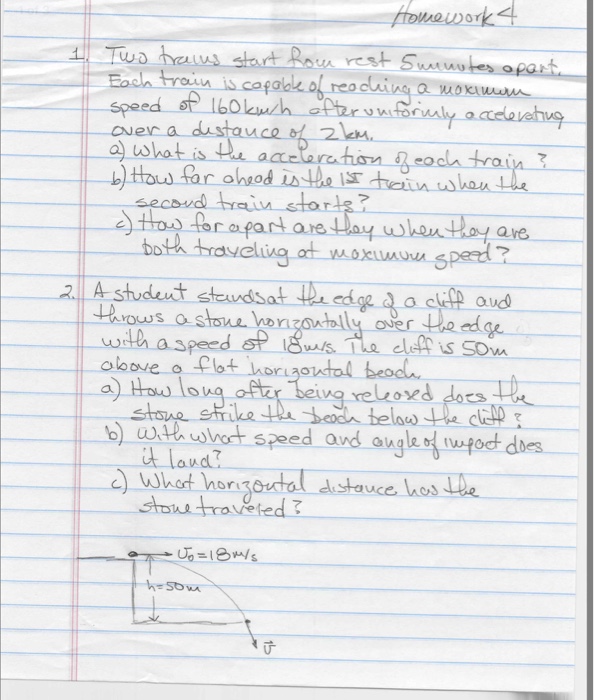 Homework 4
1. Two trains start from rest 5 minutes apart.
Each train is capable of reaching a maximum
speed of 160 km/h after uniformly accelerating
over a distance of 2 km.
a) What is the acceleration of each train?
b) How far ahead is the 1st train when the
second train starts?
c) How far apart are they when they are
both traveling at maximum speed?
2. A student stands at the edge of a cliff and
throws a stone horizontally over the edge
with a speed of 18 m/s. The cliff is 50m
above a flat horizontal beach.
a) How long after being released does the
stone strike the beach below the cliff?
b) With what speed and angle of impact does
it land?
c) What horizontal distance has the
stone traveled?
v₀=18 m/s
h=50m
v⃗